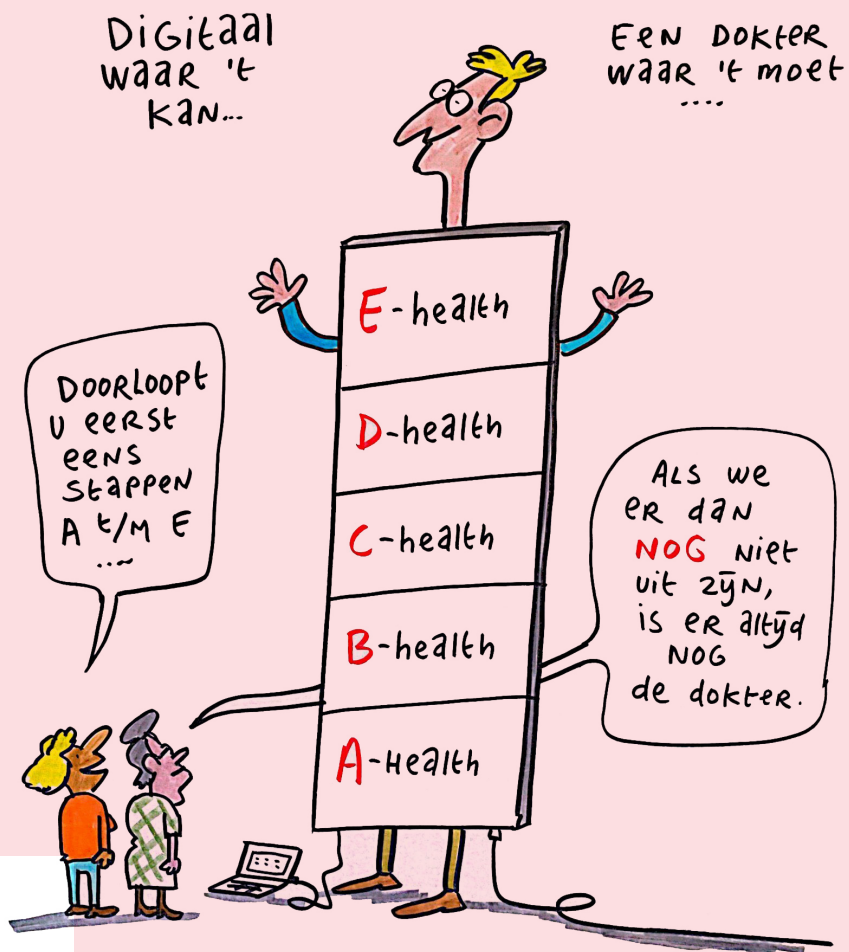 Digitaal
waar 't
kan...
Een dokter
waar 't moet
....
E-health
D-health
C-health
B-health
A-Health
Doorloopt
u eerst
eens
stappen
A t/m E
....
Als we
er dan
NOG niet
uit zijn,
is er altijd
nog
de dokter.